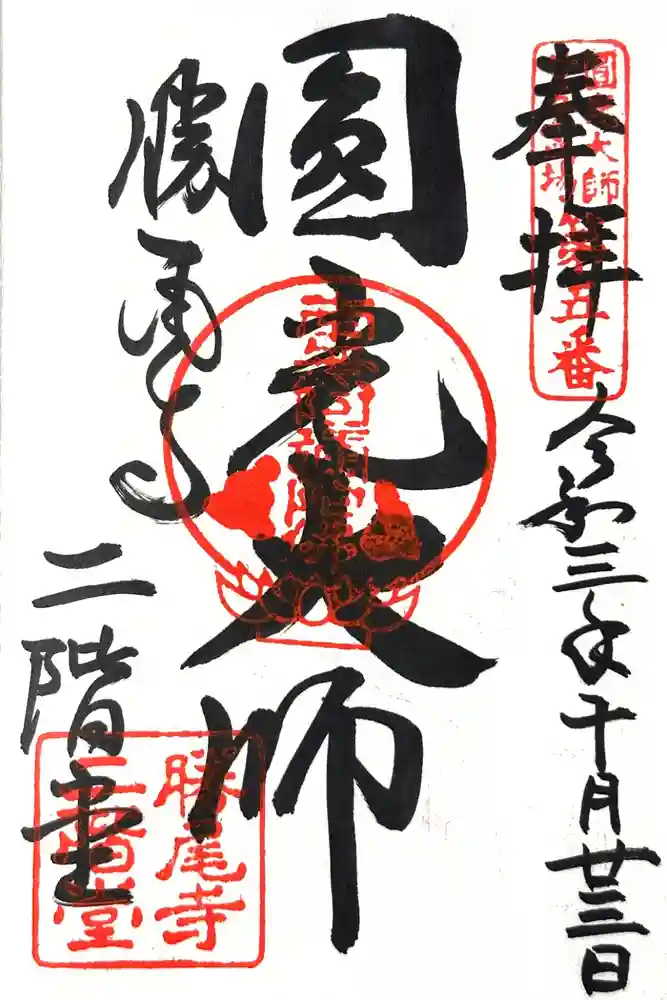 奉拝
圓光大師
第五番
令和三年十月廿三日
圓光大師
南無阿彌陀佛
勝尾寺
二階堂
勝尾寺
二階堂